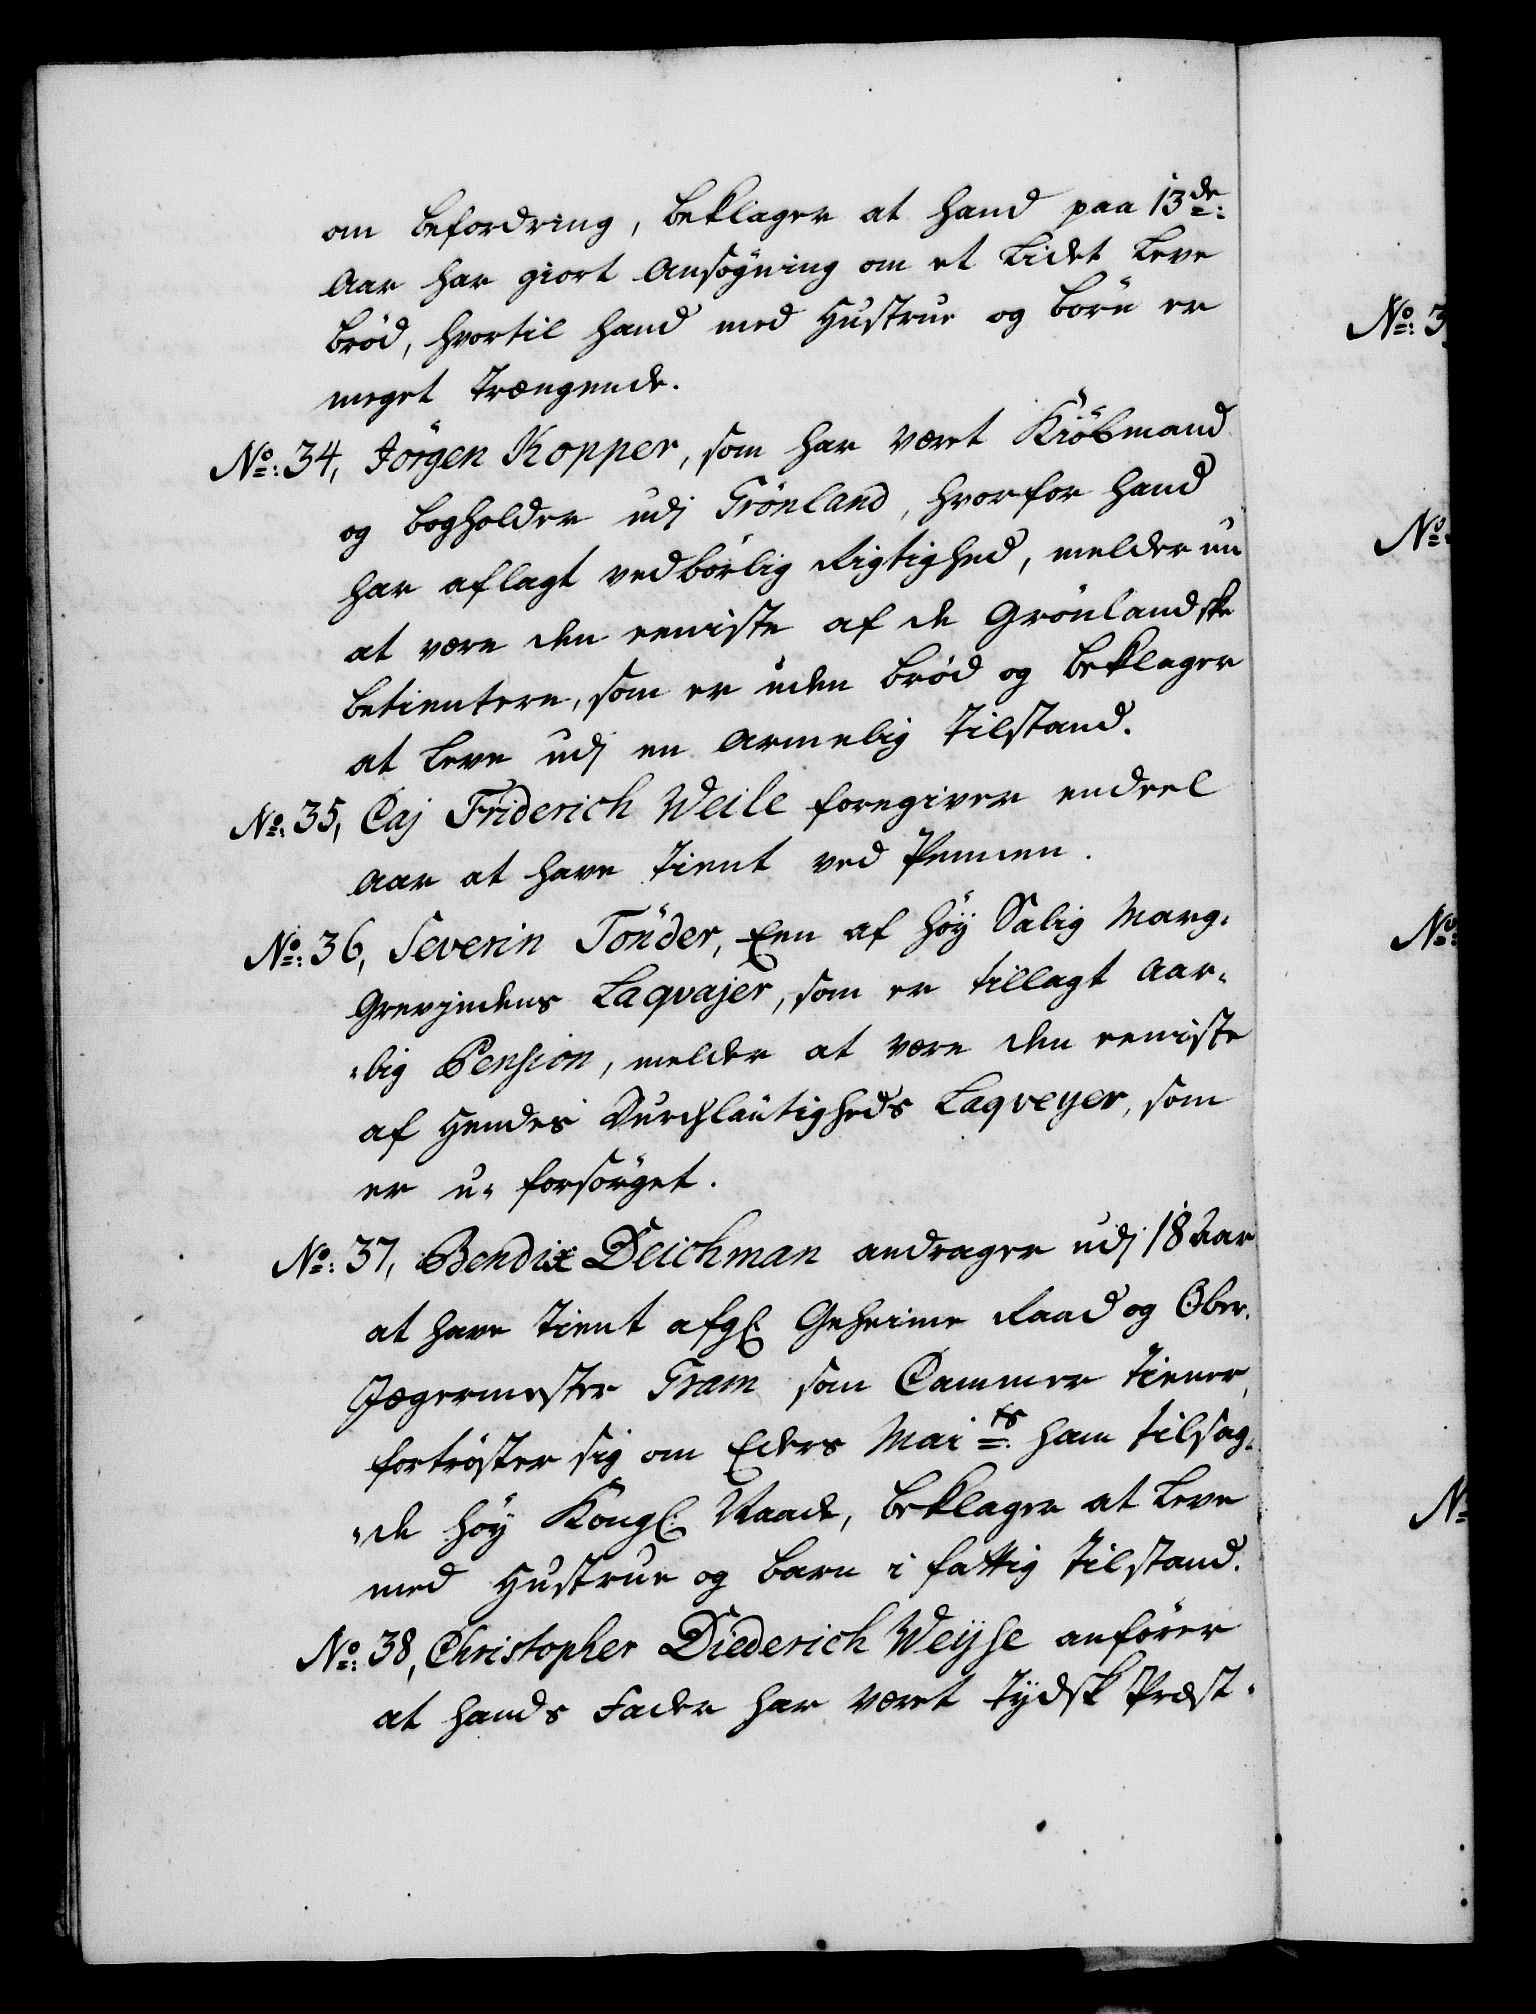 om befordring, beklager at hand paa 13de:
Aar har giort Ansøgning om et Lidet Leve
brød, hvortil hand med Hustrue og børn er
meget Trængende.
No: 34, Jörgen Kopper, som har været Kiöbmand
og bogholder udj Grönland, hvorfor hand
har aflagt vedbørlig Rigtighed, melder nu
at være den eeniste af de Grönlandske
betientere, som er uden brød og beklager
at Leve udj en Armelig Tilstand.
No: 35, Caj Friderich Weile foregiver endeel
Aar at have Tient ved Pennen.
No: 36, Severin Tönder, Een af høy Salig Marg-
Grevindens Laqvajer, som er tillagt Aar-
-lig Pension, melder at være den eeniste
af Hendes Durchlautigheds Laqveyer, som
er u- forsörget.
No: 37, Bendix Deichman andrager udj 18 Aar
at have Tient afg: Geheime Raad og Ober-
Jægermester Gram som Cammer Tiener,
fortrøster sig om Eders Mai ts: ham tilsag-
-de høy Kongl: Naade, beklager at Leve
med Hustrue og barn i fattig Tilstand.
No: 38, Christopher Diederich Weyse anfører
at hands Fader har været Tydsk Præst-
No: 3
No:
No:
No